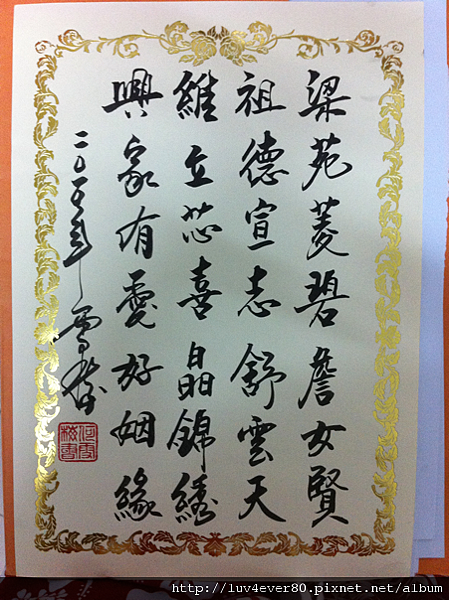 梁苑菱碧詹女賢
祖德宣志舒雲天
維立芯喜晶錦綉
興家有愛好姻緣
http://luv4ever80.pixnet.net/album